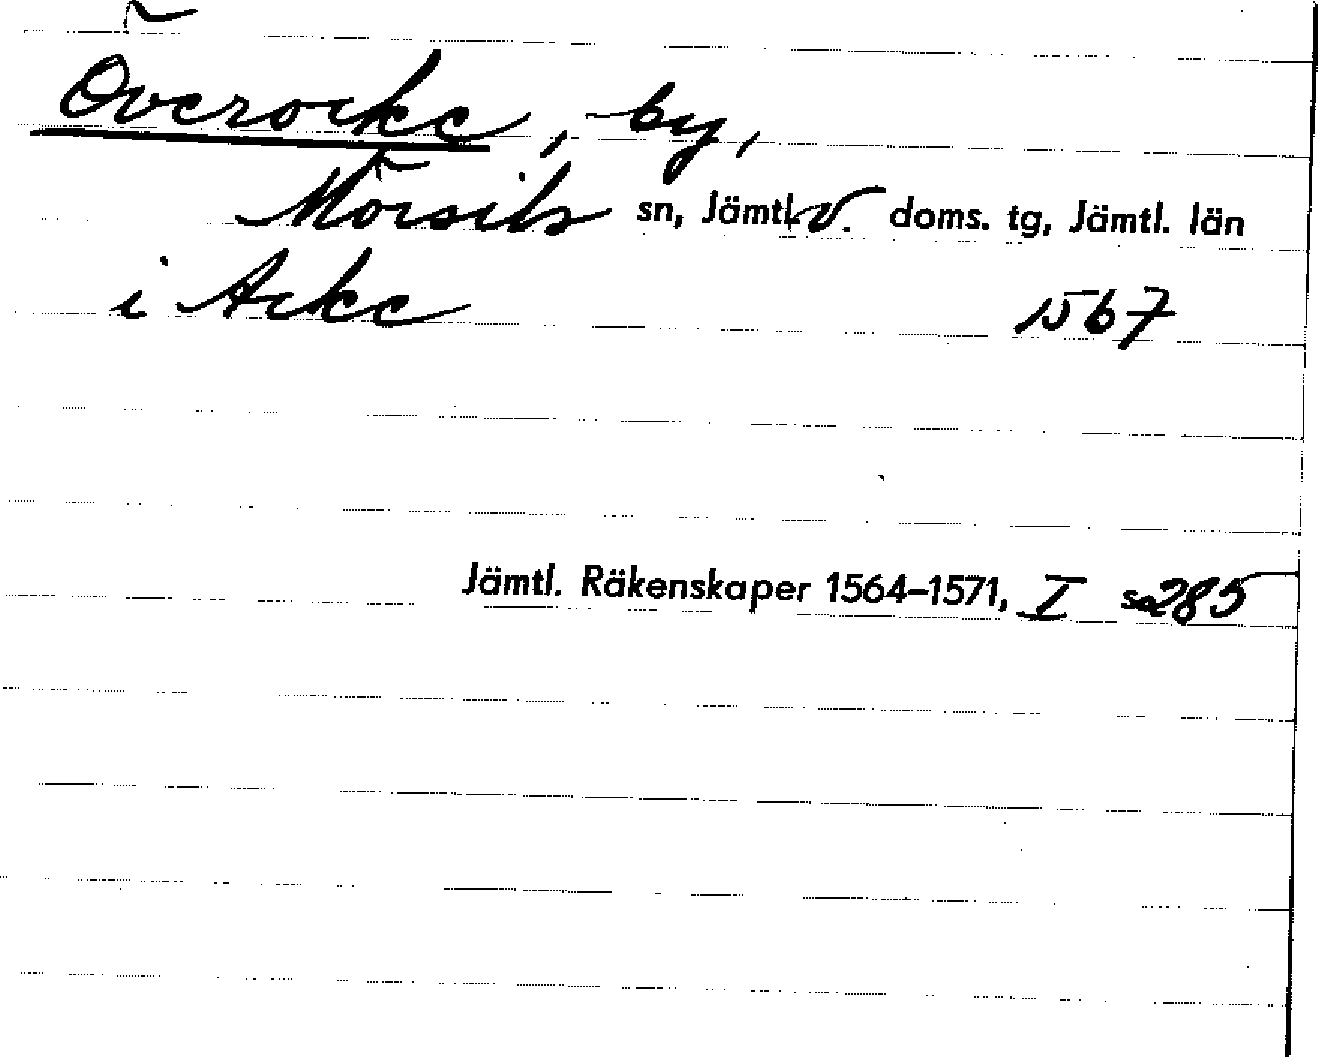 Överocke, by,
Mörsils sn, Jämtl. v. doms. tg, Jämtl. län
i Acke 1567
Jämtl. Räkenskaper 1564–1571, I s. 285